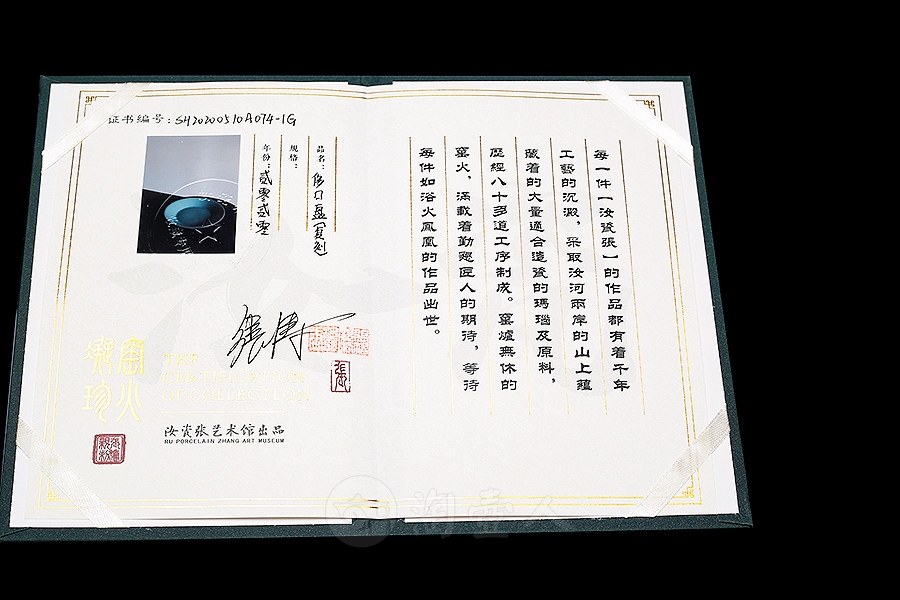 证书编号：SH20200510A074-1G
品名：侈口盏（复刻）
规格：
年份：贰零贰零
THE
CERTIFICATION
OF COLLECTION
汝瓷张艺术馆出品
RU PORCELAIN ZHANG ART MUSEUM
每一件【汝瓷張】的作品都有着千年
工藝的沉澱，采取汝河兩岸的山上蘊
藏着的大量適合造瓷的瑪瑙及原料，
歷經八十多道工序制成。窯爐無休的
窯火，滿載着勤懇匠人的期待，等待
每件如浴火鳳凰的作品出世。
淘壺人